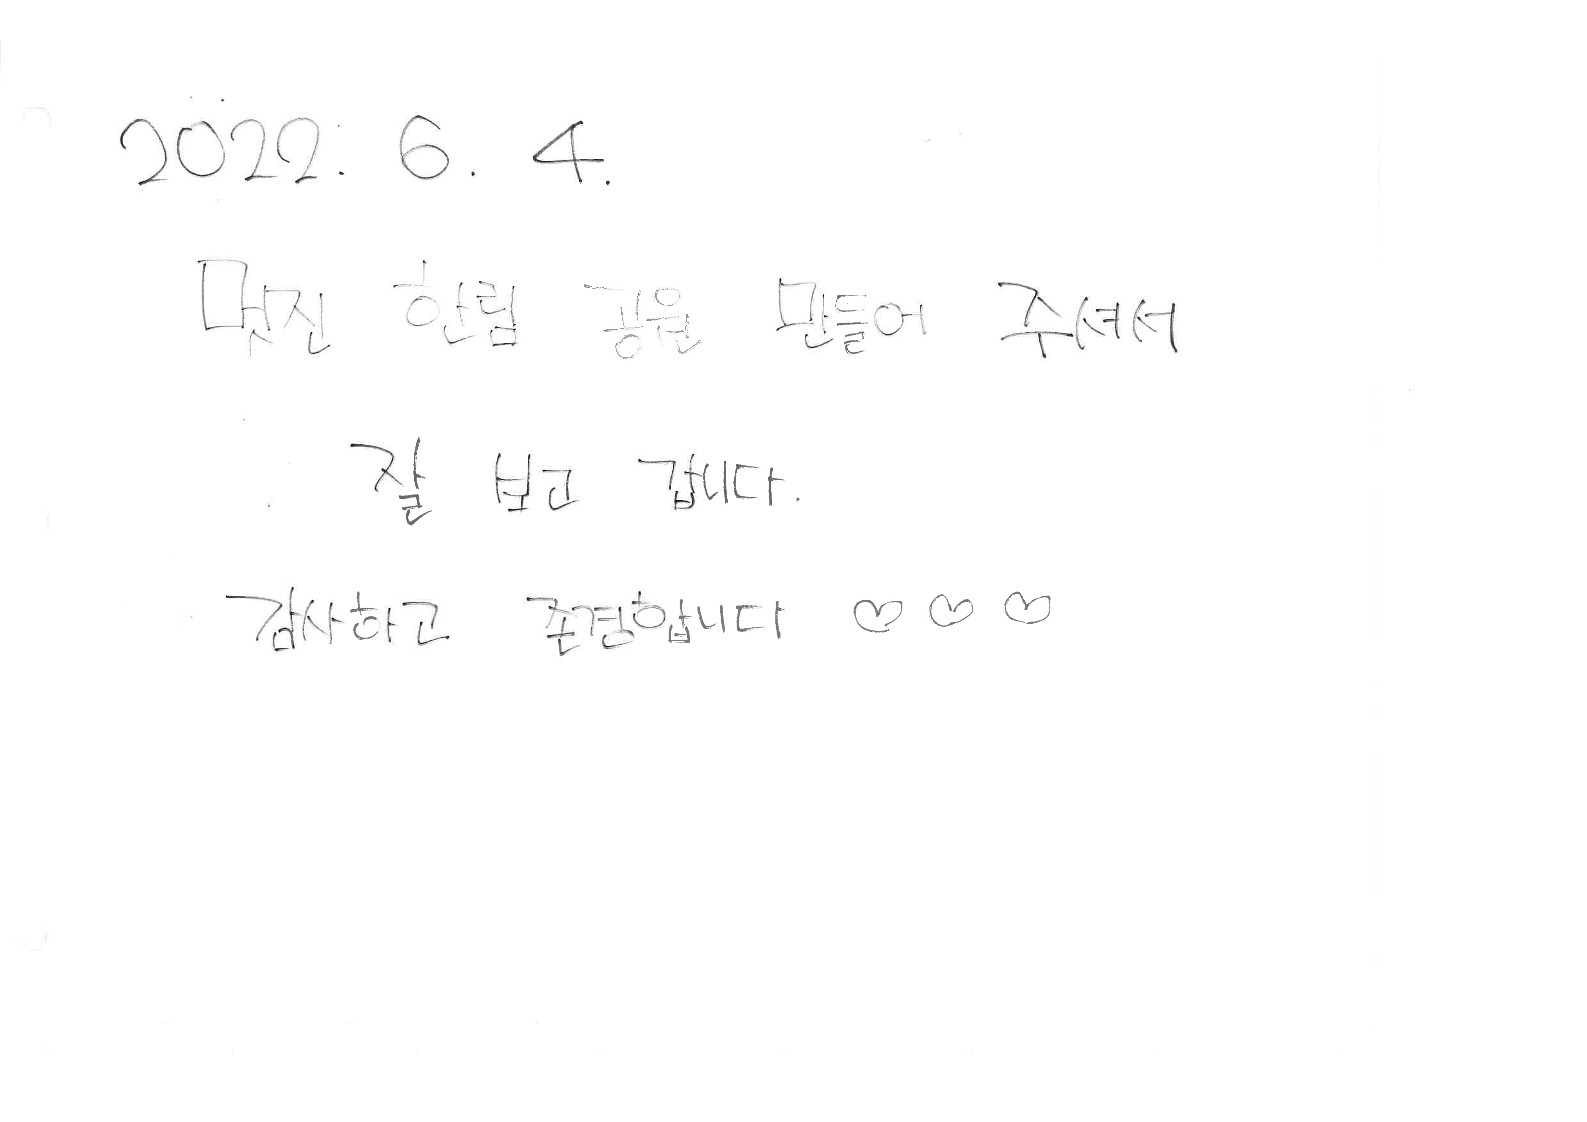 2022. 6. 4.
멋진 한림 공원 만들어 주셔서
잘 보고 갑니다.
감사하고 존경합니다 ♡♡♡